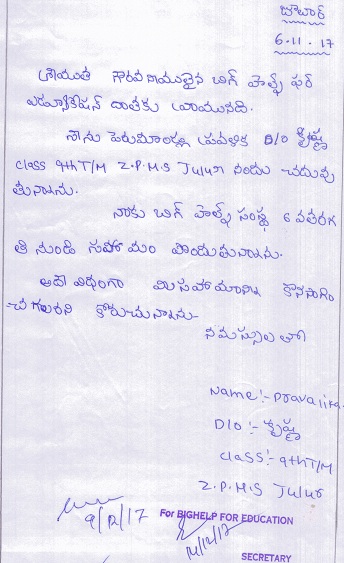 జూలూర్
6-11-17
శ్రీయుత గౌరవనీయులైన బిగ్ హెల్ప్ ఫర్
ఎడ్యుకేషన్ దాతకు వ్రాయునది.
నేను పెరుమాండ్ల ప్రవళిక D/O కృష్ణ
class 9th T/M Z.P.H.S Julur నందు చదువు
తున్నాను.
నాకు బిగ్ హెల్ప్ సంస్థ 6 వ తరగ
తి నుండి సహాయం పొందుతున్నాను.
అదే విధంగా మీ సహాయాన్ని కొనసాగిం
చగలరని కోరుచున్నాను-
నమస్సులతో
Name:- Pravalika
D/O :- కృష్ణ
class:- 9th T/M
Z.P.H.S Julur
9/12/17
For BIGHELP FOR EDUCATION
14/12/17
SECRETARY